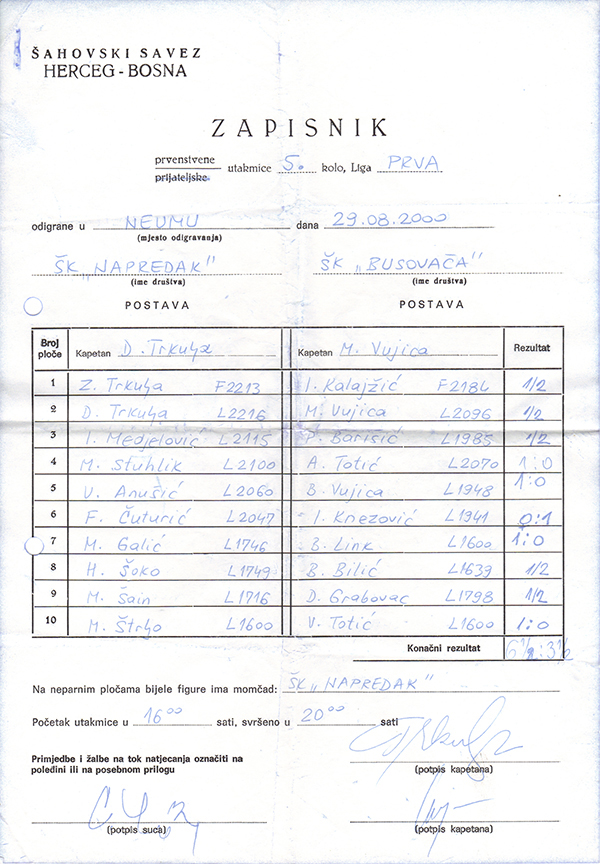 ŠAHOVSKI SAVEZ
HERCEG-BOSNA
ZAPISNIK
prvenstvene
prijateljske
utakmice 5. kolo, Liga PRVA
odigrane u NEUMU dana 29.08.2000
(mjesto odigravanja)
ŠK „NAPREDAK" ŠK „BUSOVAČA"
(ime društva) (ime društva)
POSTAVA POSTAVA
Broj ploče Kapetan D. Trkulja Kapetan M. Vujica Rezultat
1 Z. Trkulja F2213 I. Kalajžić F2184 1/2
2 D. Trkulja L2216 M. Vujica L2096 1/2
3 I. Medjelović L2115 P. Barišić L1985 1/2
4 M. Stuhlik L2100 A. Totić L2070 1:0
5 V. Anušić L2060 B. Vujica L1948 1:0
6 F. Čuturić L2047 I. Knezović L1941 0:1
7 M. Galić L1746 B. Link L1600 1:0
8 H. Šoko L1749 B. Bilić L1639 1/2
9 M. Šain L1716 D. Grabovac L1798 1/2
10 M. Štrljo L1600 V. Totić L1600 1:0
Konačni rezultat 6½:3½
Na neparnim pločama bijele figure ima momčad: ŠK „NAPREDAK"
Početak utakmice u 16⁰⁰ sati, svršeno u 20⁰⁰ sati
Primjedbe i žalbe na tok natjecanja označiti na
poleđini ili na posebnom prilogu
(potpis kapetana)
(potpis suca) (potpis kapetana)